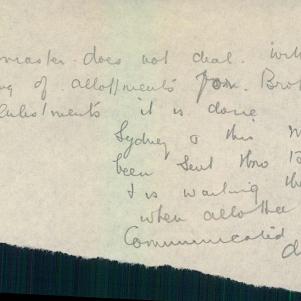 master does not deal. with
of allotments from. Brot
it is done
Sydney & this M
been sent thro B
I is waiting the
when allother
Communicated
d